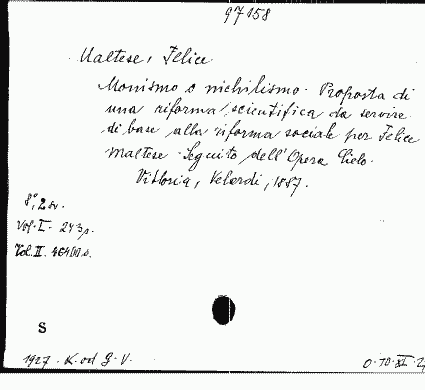 97158
Maltese, Felice
Monismo o nichilismo. Proposta di
una riforma scientifica da servire
di base alla riforma sociale per Felice
Maltese. Seguito dell'Opera Cielo.
Vittoria, Velardi, 1887.
8°, 2 sv.
Vol. I. 243 s.
Vol. II. 464 s.
S
1927. K. od G. V.